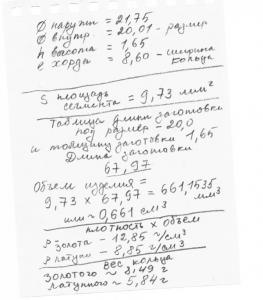 Ø наружн = 21,75
Ø внутр. = 20,01 - размер
h высота = 1,65
e хорды = 8,60 - ширина
кольца
S площадь
сегмента = 9,73 мм²
Таблица длин заготовки
под размер - 20,0
и толщину заготовки 1,65
Длина заготовки
67,97
Объем изделия =
9,73 х 67,97 = 661,1535
мм3
или ~ 0,661 см3
плотность х объем
ρ золота - 12,85 г/см3
ρ латуни - 8,85 г/см3
вес кольца
золотого ~ 8,49 г
латунного ~ 5,84 г